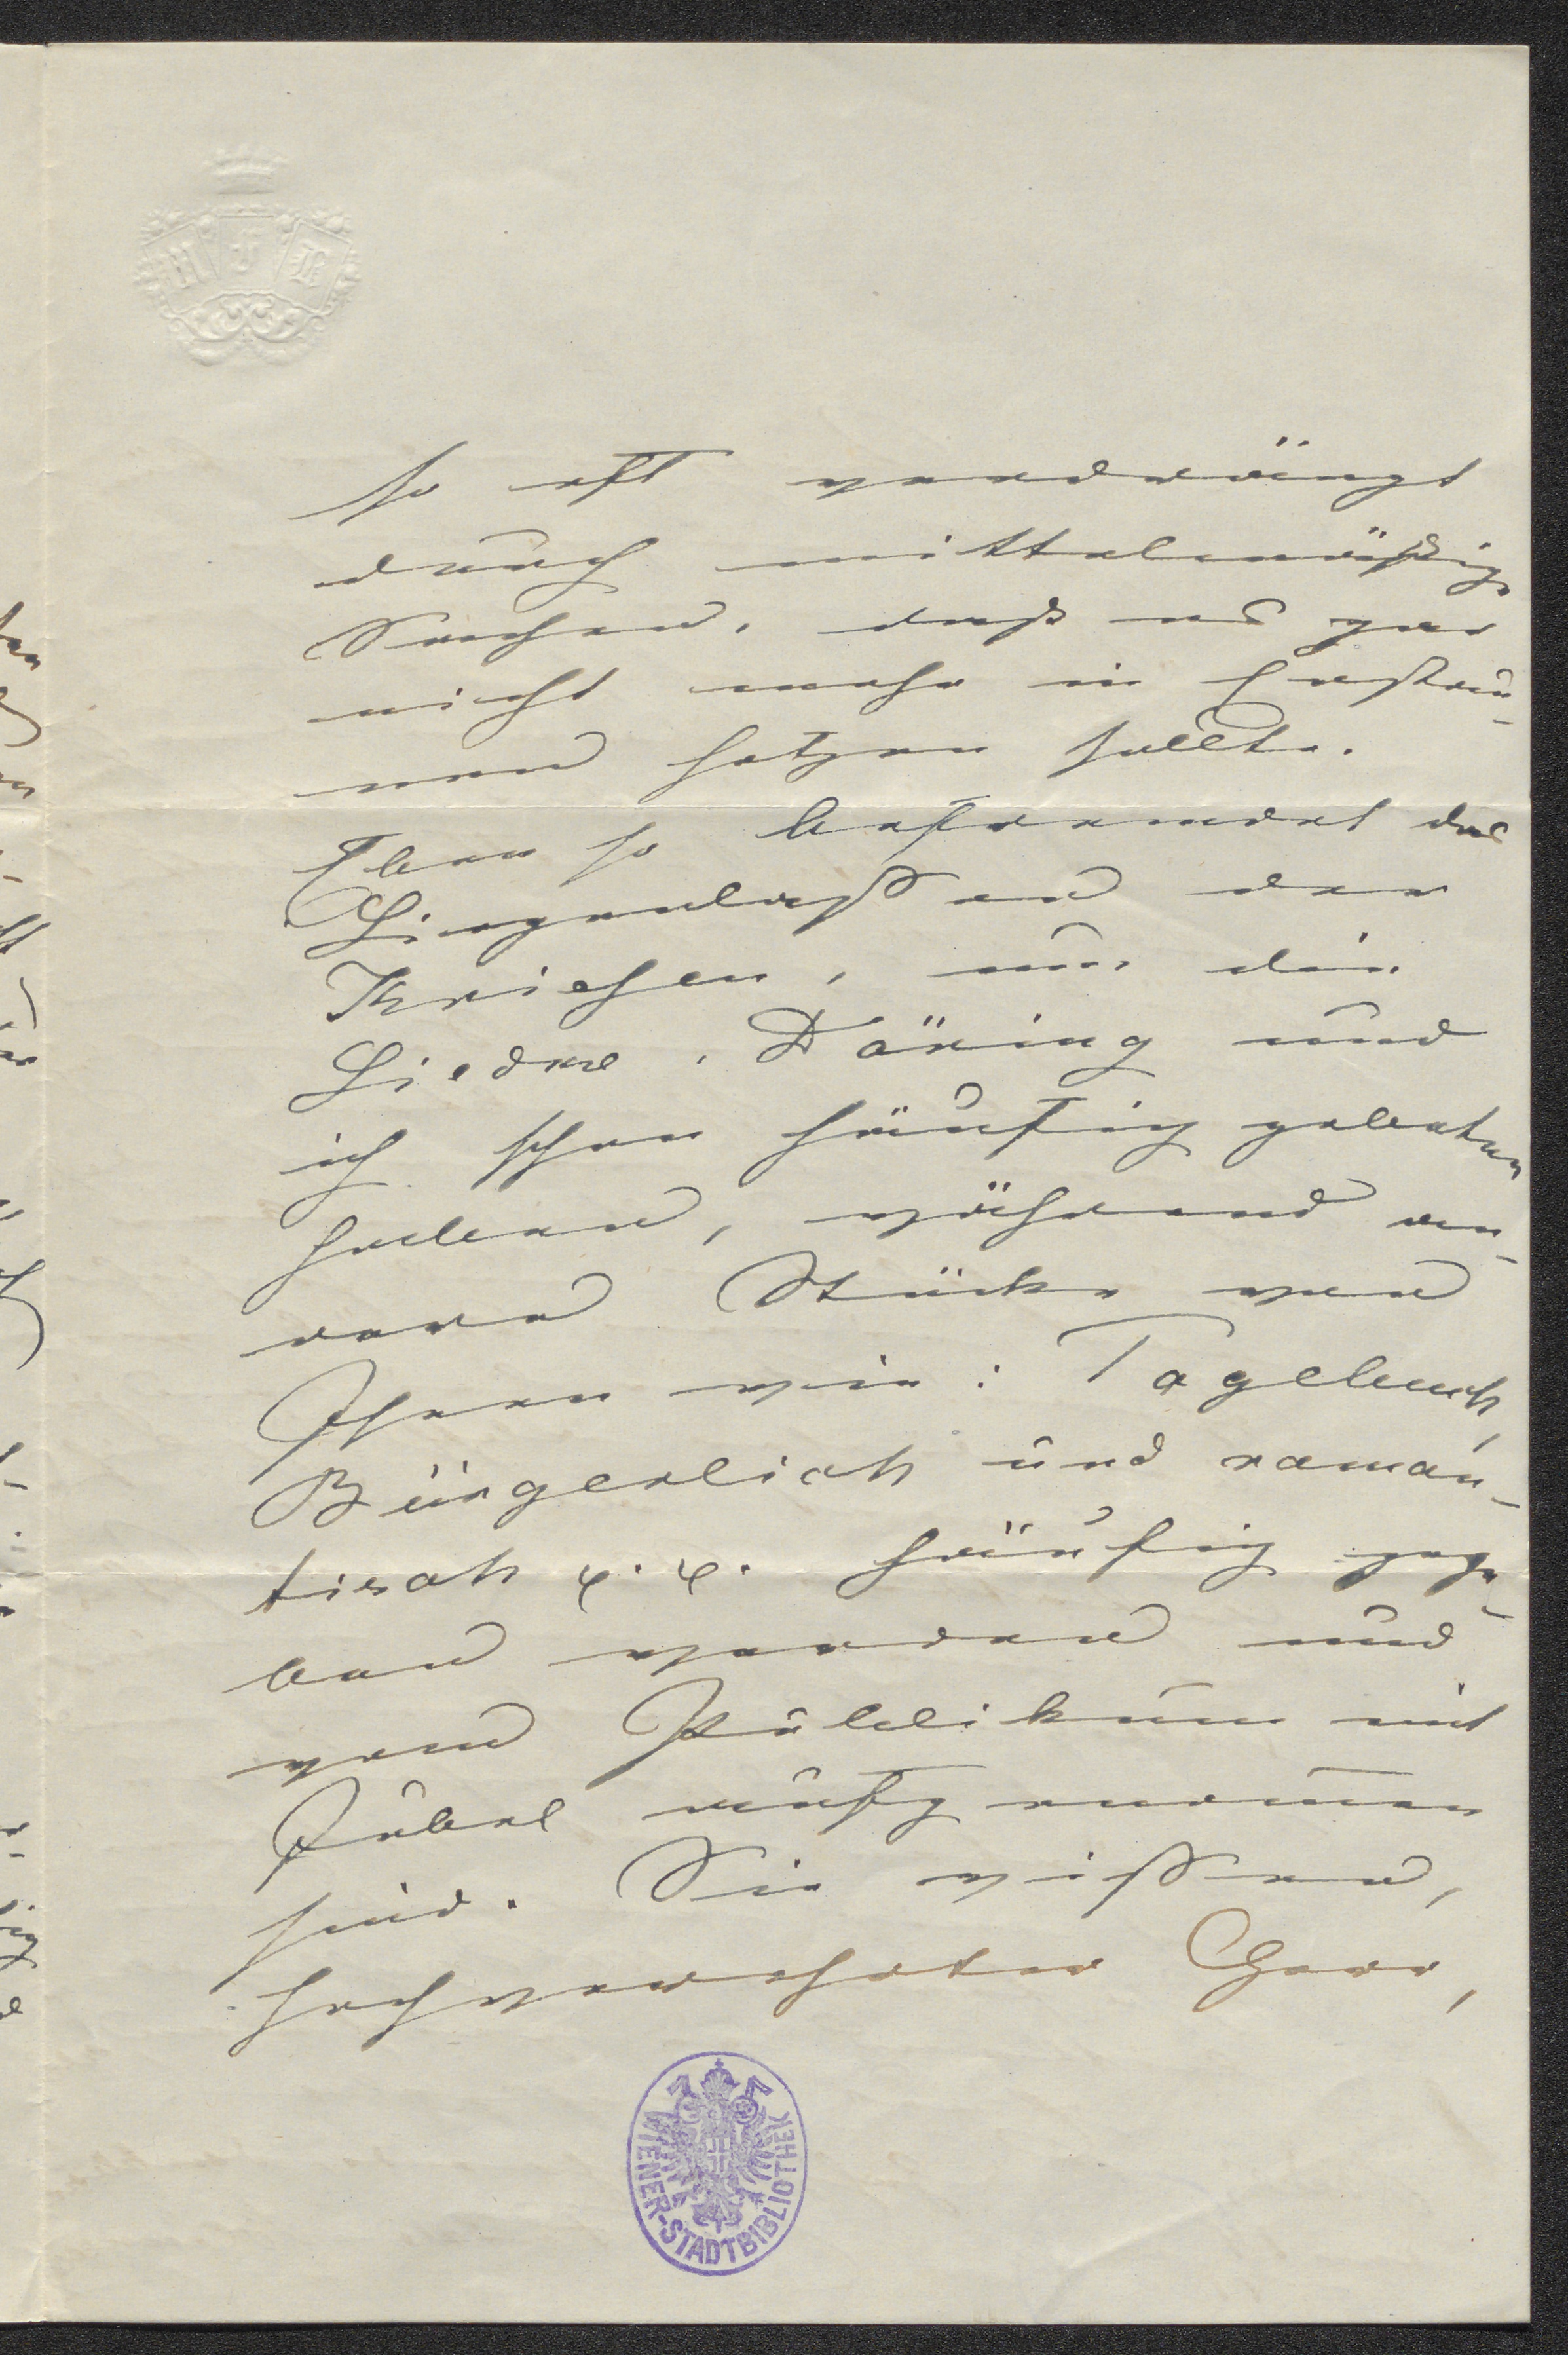 so oft verdrängt
durch mittelmäßige
Sachen, daß es gar
nicht mehr in Erstau-
nen setzen sollte.
Eben so befremdet das
Liegenlassen der
Krisen, um die
Liedtke, Döring und
ich schon häufig gebeten
haben, während an-
dere Stücke von
Ihnen wie: Tagebuch,
Bürgerlich und roman-
tisch p. p. häufig gege-
ben worden und
vom Publikum mit
Jubel aufgenommen
sind. Sie wissen,
hochverehrter Herr,
WIENER-STADTBIBLIOTHEK